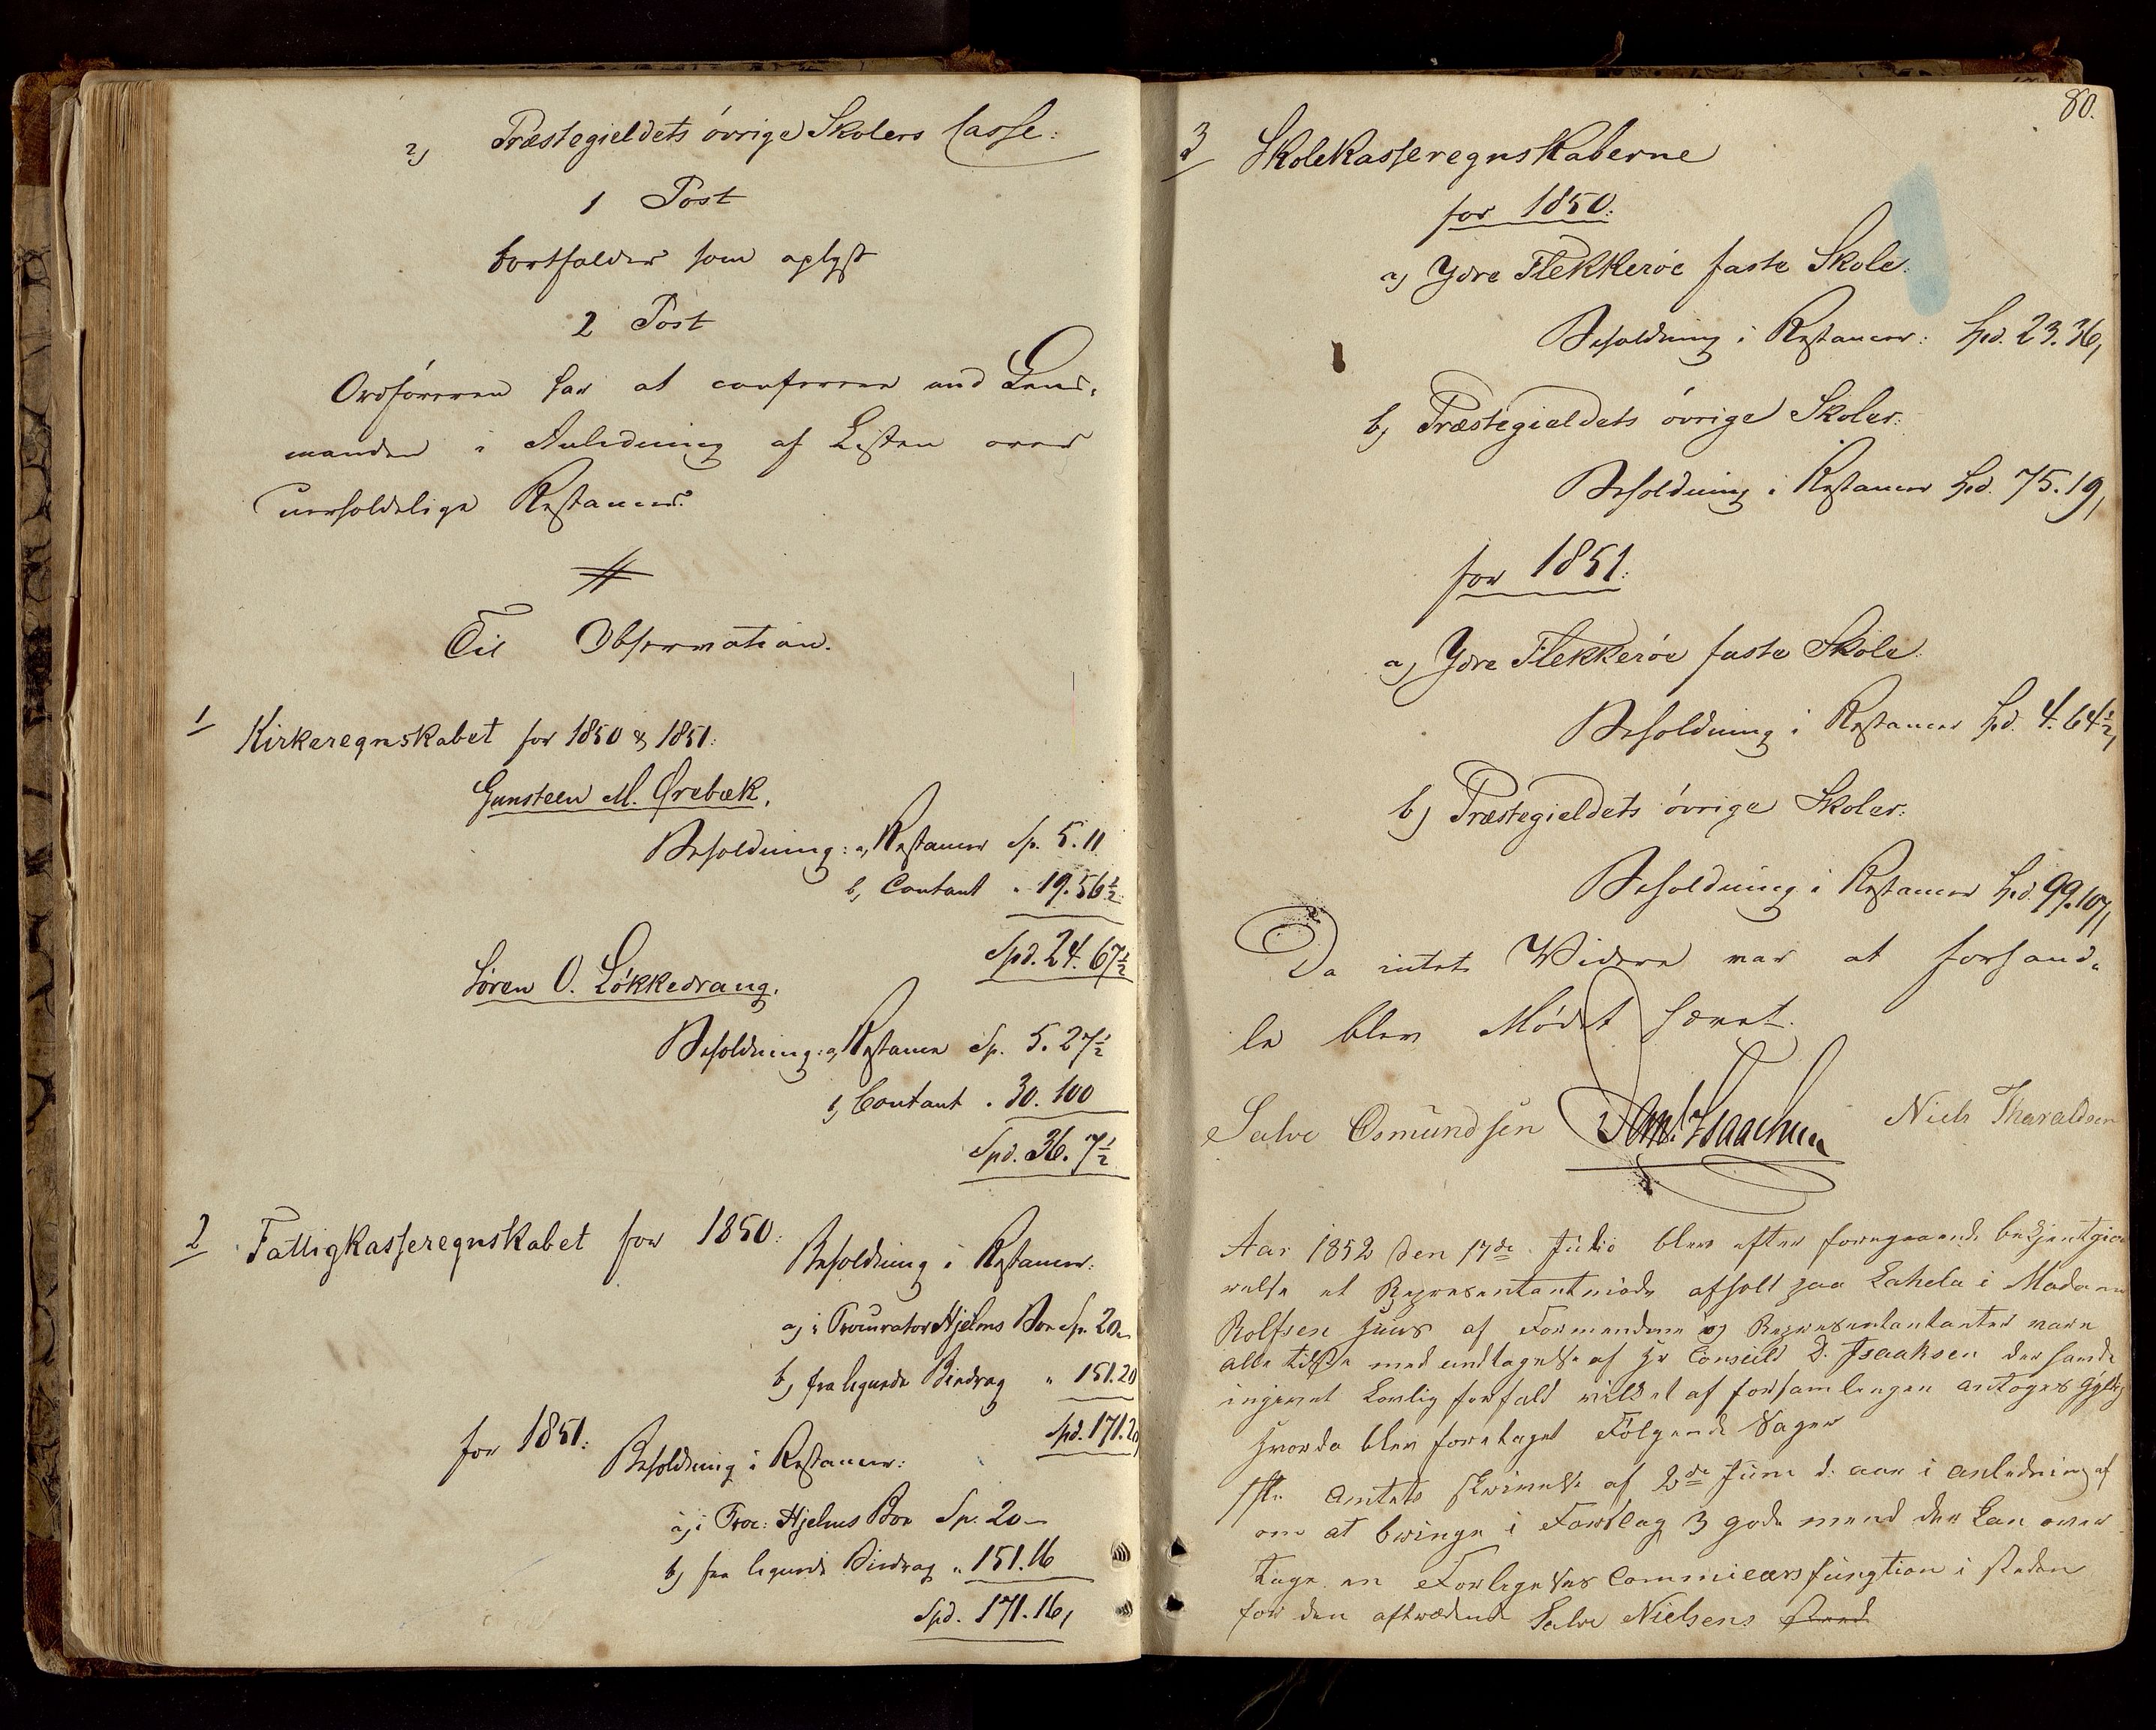 2) Præstegieldets övrige Skolers Casse:
1 Post
bortfalder som oplyst
2 Post
Ordföreren har at conferere med Lens-
manden i Anledning af Listen over
uerholdelige Restancer.
Til Observation.
1 Kirkeregnskabet for 1850 & 1851:
Gunsteen M. Ørebæk.
Beholdning: a, Restancer Sp. 5.11
b, Contant " 19.56½
Spd. 24.67½
Sören O. Lökkedrang.
Beholdning: a, Restance Sp. 5.27½
b, Contant " 30.100
Spd. 36.7½
2 Fattigkasseregnskabet for 1850:
Beholdning i Restancer:
a, i Procurator Hjelms Boe Sp. 20 –
b, fra lignede Bidrag " 151.20
Spd. 171.20
for 1851:
Beholdning i Restancer:
a, i Proc: Hjelms Boe Sp. 20 –
b, fra lignede Bidrag " 151.16
Spd. 171.16,
80.
3 Skolekasseregnskaberne
for 1850:
a, Ydre Flekkeröe faste Skole:
Beholdning i Restancer: Spd. 23.36,
b, Præstegieldets övrige Skoler:
Beholdning i Restancer Spd. 75.19,
for 1851:
a, Ydre Flekkeröe faste Skole
Beholdning i Restancer Spd. 4.64½,
b, Præstegieldets övrige Skoler:
Beholdning i Restancer Spd. 99.107,
Da intet Videre var at forhand-
le blev Mödet hævet.
Salve Osmundsen D. Isaachsen Niels Tharaldsen
Aar 1852 den 17de Julio blev efter foregaaende bekjentgiö
relse et Representantmöde afholt paa Lahela i Madam
Rolfsen huus af Formendene og Representantanter vare
alle tilste med undtagelse af Hr Consuld D. Isaaksen der havde
ingivet Lovlig forfald vilket af forsamlingen antoges Gyldig
hvorda blev foretaget Fölgende Sager
1ste Amtets skrivelse af 2de Juni d. aar i anledning af
om at bringe i Forslag 3 gode mend der kan over
tage en Forligelses Commisærs fungtion i steden
for den aftrædende Salve Nielsens